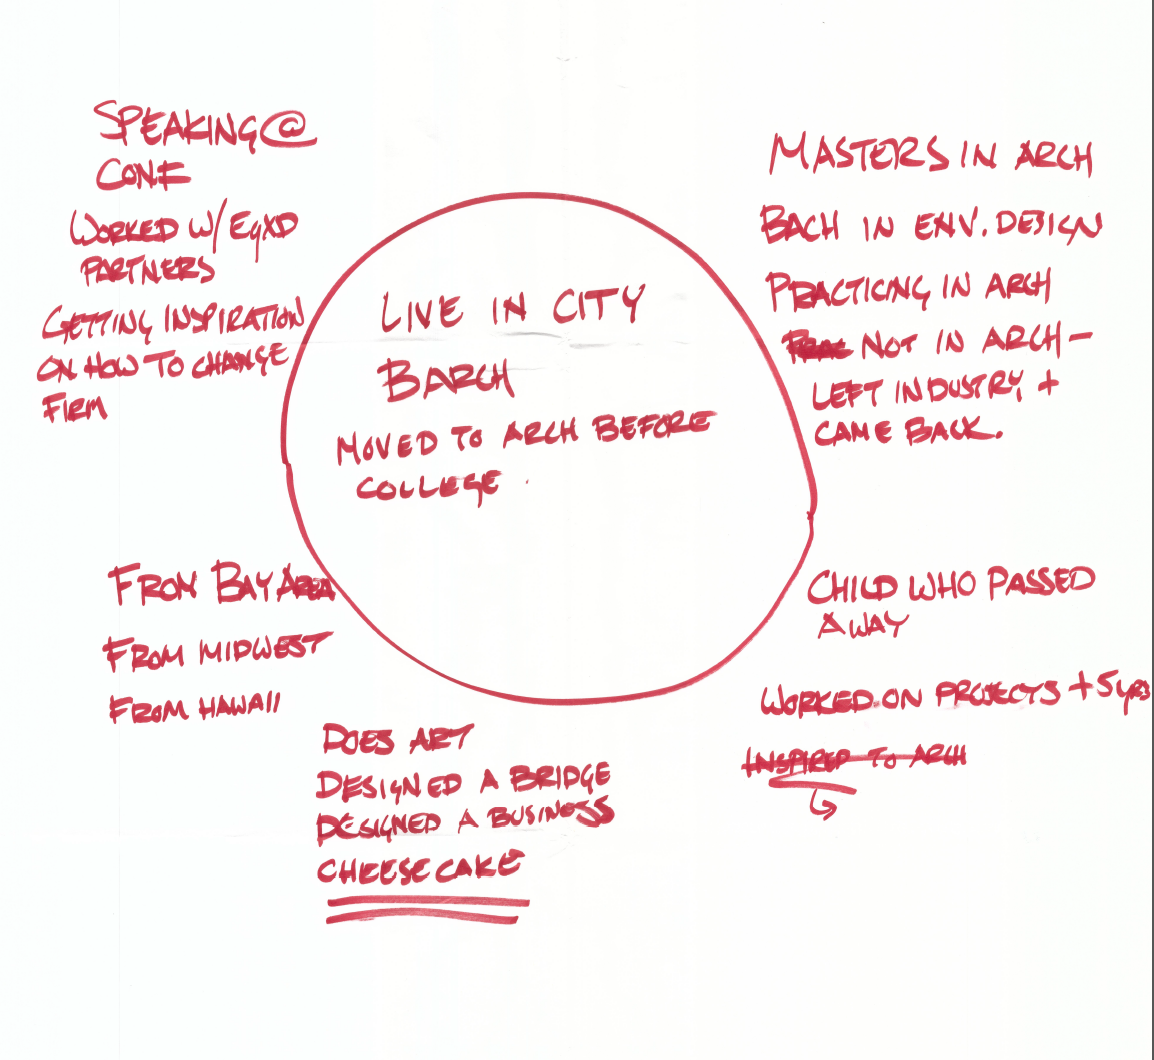 SPEAKING@
CONF
WORKED W/ EQXD
PARTNERS
GETTING INSPIRATION
ON HOW TO CHANGE
FIRM
LIVE IN CITY
BARCH
MOVED TO ARCH BEFORE
COLLEGE.
MASTERS IN ARCH
BACH IN ENV. DESIGN
PRACTICING IN ARCH
NOT IN ARCH-
LEFT INDUSTRY +
CAME BACK.
FROM BAY AREA
FROM MIDWEST
FROM HAWAII
DOES ART
DESIGNED A BRIDGE
DESIGNED A BUSINESS
CHEESECAKE
CHILD WHO PASSED
AWAY
WORKED ON PROJECTS +5 yrs
INSPIRED TO ARCH